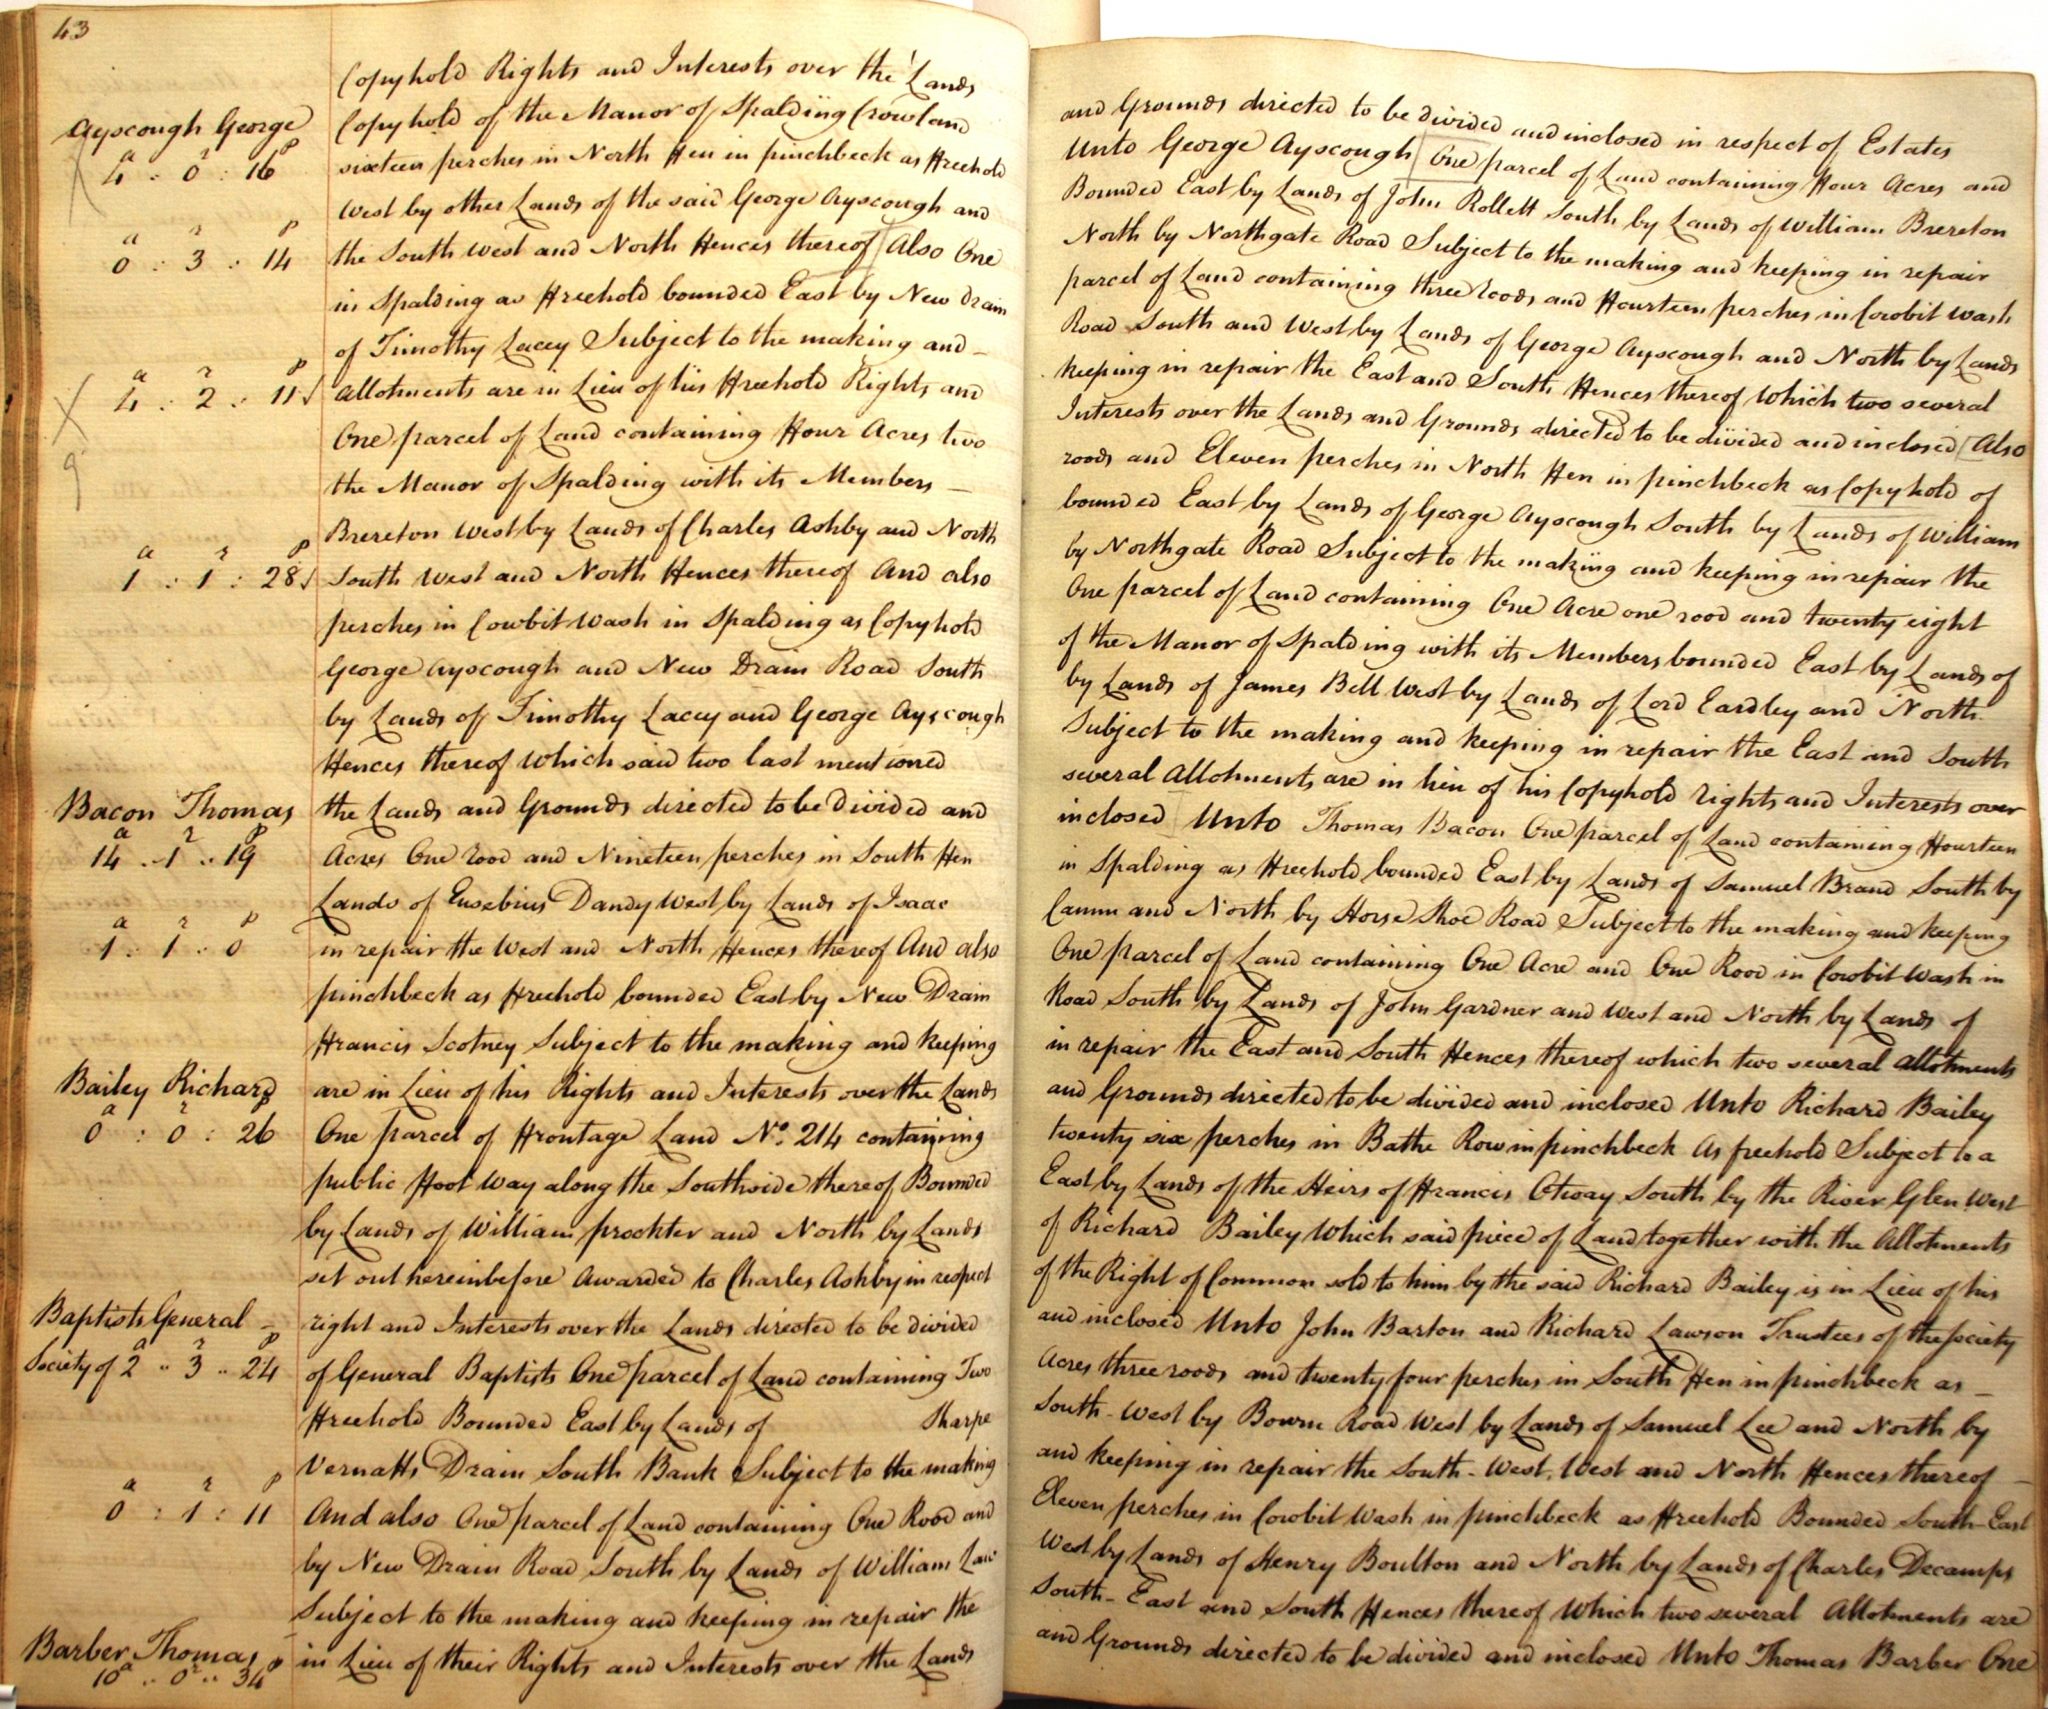 43
Copyhold Rights and Interests over the Lands and Grounds directed to be divided and inclosed in respect of Estates
Ayscough George
Copyhold of the Manor of Spalding Crowland Unto George Ayscough One parcel of Land containing Four Acres and
a r p
4 : 0 : 16
sixteen perches in North Fen in pinchbeck as Freehold Bounded East by Lands of John Rollett South by Lands of William Brereton
West by other Lands of the said George Ayscough and North by Northgate Road Subject to the making and keeping in repair
a r p
0 : 3 : 14
the South West and North Fences thereof Also One parcel of Land containing three roods and Fourteen perches in Cowbit Wash
in Spalding as Freehold bounded East by New Drain Road South and West by Lands of George Ayscough and North by Lands
of Timothy Lacey Subject to the making and keeping in repair the East and South Fences thereof Which two several
a r p
4 : 2 : 11
Allotments are in Lieu of his Freehold Rights and Interests over the Lands and Grounds directed to be divided and inclosed Also
One parcel of Land containing Four Acres two roods and Eleven perches in North Fen in pinchbeck as Copyhold of
9
the Manor of Spalding with its Members bounded East by Lands of George Ayscough South by Lands of William
Brereton West by Lands of Charles Ashby and North by Northgate Road Subject to the making and keeping in repair the
a r p
1 : 1 : 28
South West and North Fences thereof And also One parcel of Land containing One Acre one rood and twenty eight
perches in Cowbit Wash in Spalding as Copyhold of the Manor of Spalding with its Members bounded East by Lands of
George Ayscough and New Drain Road South by Lands of James Bell West by Lands of Lord Eardley and North
by Lands of Timothy Lacey and George Ayscough Subject to the making and keeping in repair the East and South
Fences thereof Which said two last mentioned several Allotments are in lieu of his Copyhold rights and Interests over
Bacon Thomas
the Lands and Grounds directed to be Divided and inclosed Unto Thomas Bacon One parcel of Land containing Fourteen
a r p
14 .. 1 .. 19
Acres One rood and Nineteen perches in South Fen in Spalding as Freehold bounded East by Lands of Samuel Brand South by
Lands of Eusebius Dandy West by Lands of Isaac Camm and North by Horse Shoe Road Subject to the making and keeping
a r p
1 : 1 : 0
in repair the West and North Fences thereof And also One parcel of Land containing One Acre and One Rood in Cowbit Wash in
pinchbeck as Freehold bounded East by New Drain Road South by Lands of John Gardner and West and North by Lands of
Francis Scotney Subject to the making and keeping in repair the East and South Fences thereof which two several allotments
Bailey Richard
are in Lieu of his Rights and Interests over the Lands and Grounds directed to be divided and inclosed Unto Richard Bailey
a r p
0 : 0 : 26
One parcel of Frontage Land No. 214 containing twenty six perches in Bathe Row in pinchbeck As freehold Subject to a
public Foot Way along the Southside thereof Bounded East by Lands of the Heirs of Francis Otway South by the River Glen West
by Lands of William prockter and North by Lands of Richard Bailey Which said piece of Land together with the Allotments
set out hereinbefore Awarded to Charles Ashby in respect of the Right of Common sold to him by the said Richard Bailey is in Lieu of his
Baptists General
right and Interests over the Lands directed to be divided and inclosed Unto John Barton and Richard Lawson Trustees of the Society
Society of a r p
2 .. 3 .. 24
of General Baptists One parcel of Land containing Two Acres three roods and twenty four perches in South Fen in pinchbeck as
Freehold Bounded East by Lands of Sharpe South-West by Bourn Road West by Lands of Samuel Lee and North by
Vernatts Drain South Bank Subject to the making and keeping in repair the South-West, West and North Fences thereof
a r p
0 : 1 : 11
And also One parcel of Land containing One Rood and Eleven perches in Cowbit Wash in pinchbeck as Freehold Bounded South-East
by New Drain Road South by Lands of William Law West by Lands of Henry Boulton and North by Lands of Charles Decamps
Subject to the making and keeping in repair the South-East and South Fences thereof Which two several Allotments are
Barber Thomas
a r p
10 .. 0 .. 34
in Lieu of their Rights and Interests over the Lands and Grounds directed to be divided and inclosed Unto Thomas Barber One